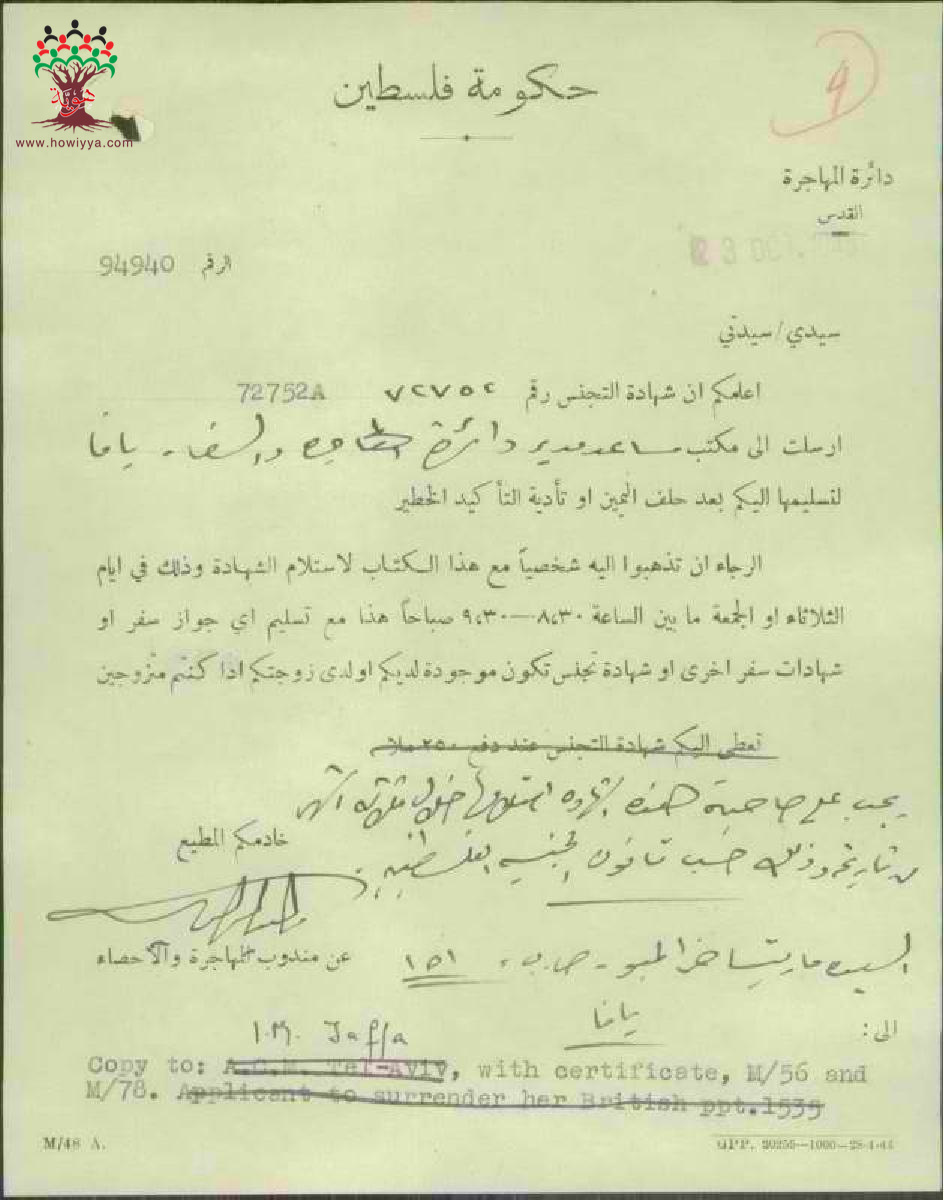 هوية
www.howiyya.com
9
حكومة فلسطين
دائرة المهاجرة
القدس
23 OCT.
الرقم 94940
سيدي/سيدتي
اعلمكم ان شهادة التجنس رقم ٧٢٧٥٢ 72752A
ارسلت الى مكتب مساعد مدير دائرة المهاجرة والسفر يافا
لتسليمها اليكم بعد حلف اليمين او تأدية التأكيد الخطير
الرجاء ان تذهبوا اليه شخصياً مع هذا الكتاب لاستلام الشهادة وذلك في ايام
الثلاثاء او الجمعة ما بين الساعة ٨،٣٠—٩،٣٠ صباحاً هذا مع تسليم اي جواز سفر او
شهادات سفر اخرى او شهادة تجنس تكون موجودة لديكم او لدى زوجتكم اذا كنتم متزوجين
تعطى اليكم شهادة التجنس عند دفع ٢٥٠ ملاً
يجب على صاحبة هذه الشهادة استلامها خلال ثلاثة اشهر
من تاريخه وذلك حسب قانون الجنسية الفلسطينية
خادمكم المطيع
عن مندوب المهاجرة والاحصاء
السيده ص.ب. ١٥١
يافا
الى:
I.M. Jaffa
Copy to: A.C.M. Tel-Aviv, with certificate, M/56 and
M/78. Applicant to surrender her British ppt.1535
M/48 A.
GPP. 30255—1000—28-4-44